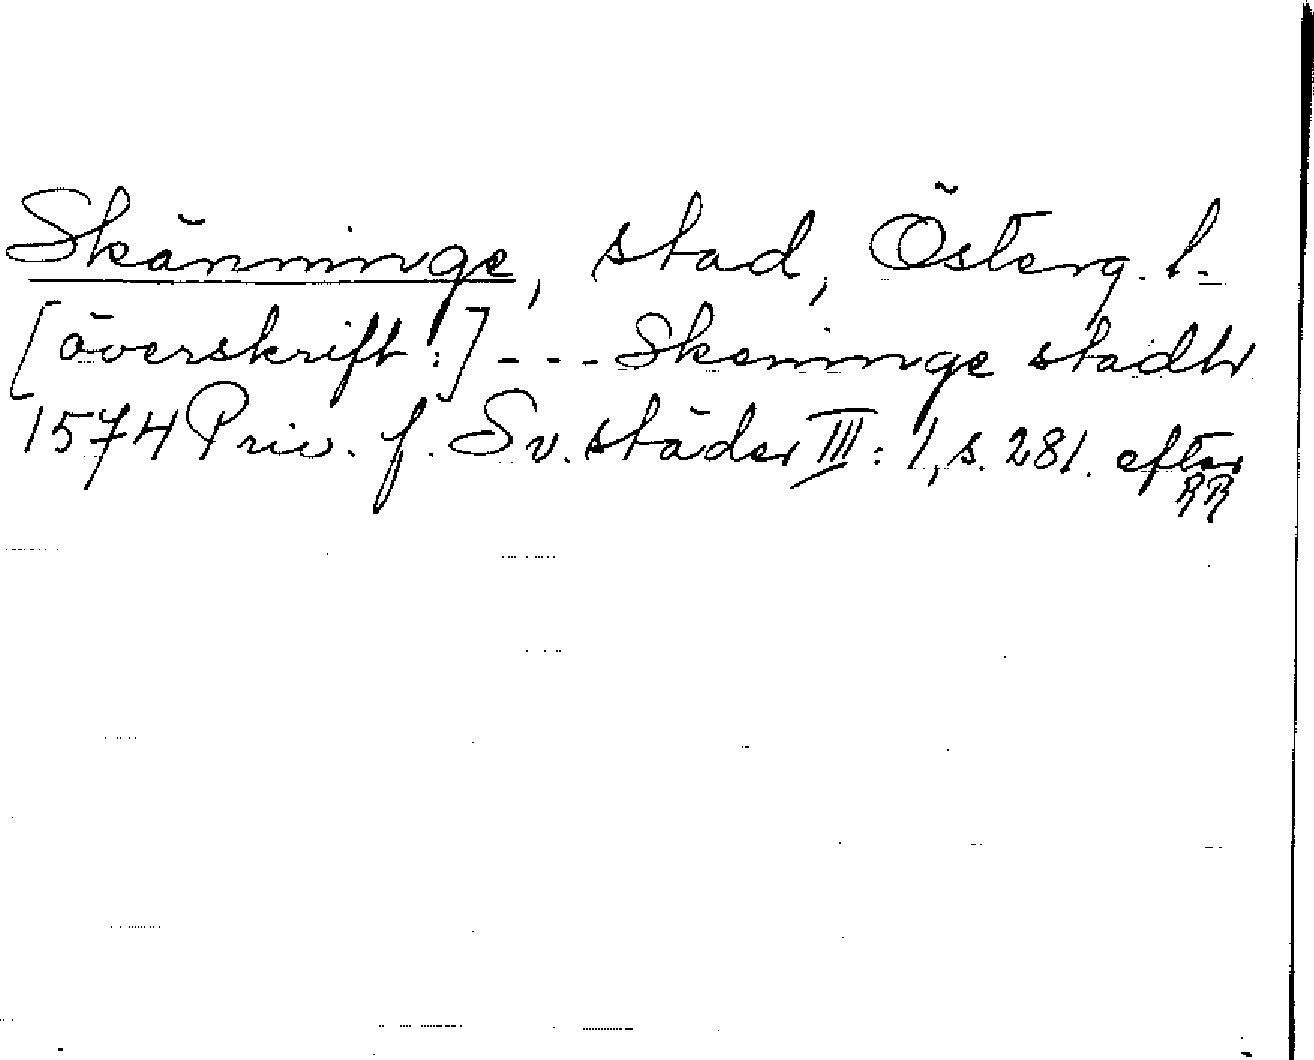 Skänninge, stad, Österg. l.
[överskrift:] - - - Skeninge stadh
1574 Priv. f. Sv. städer III: 1, s. 281. efter
RR